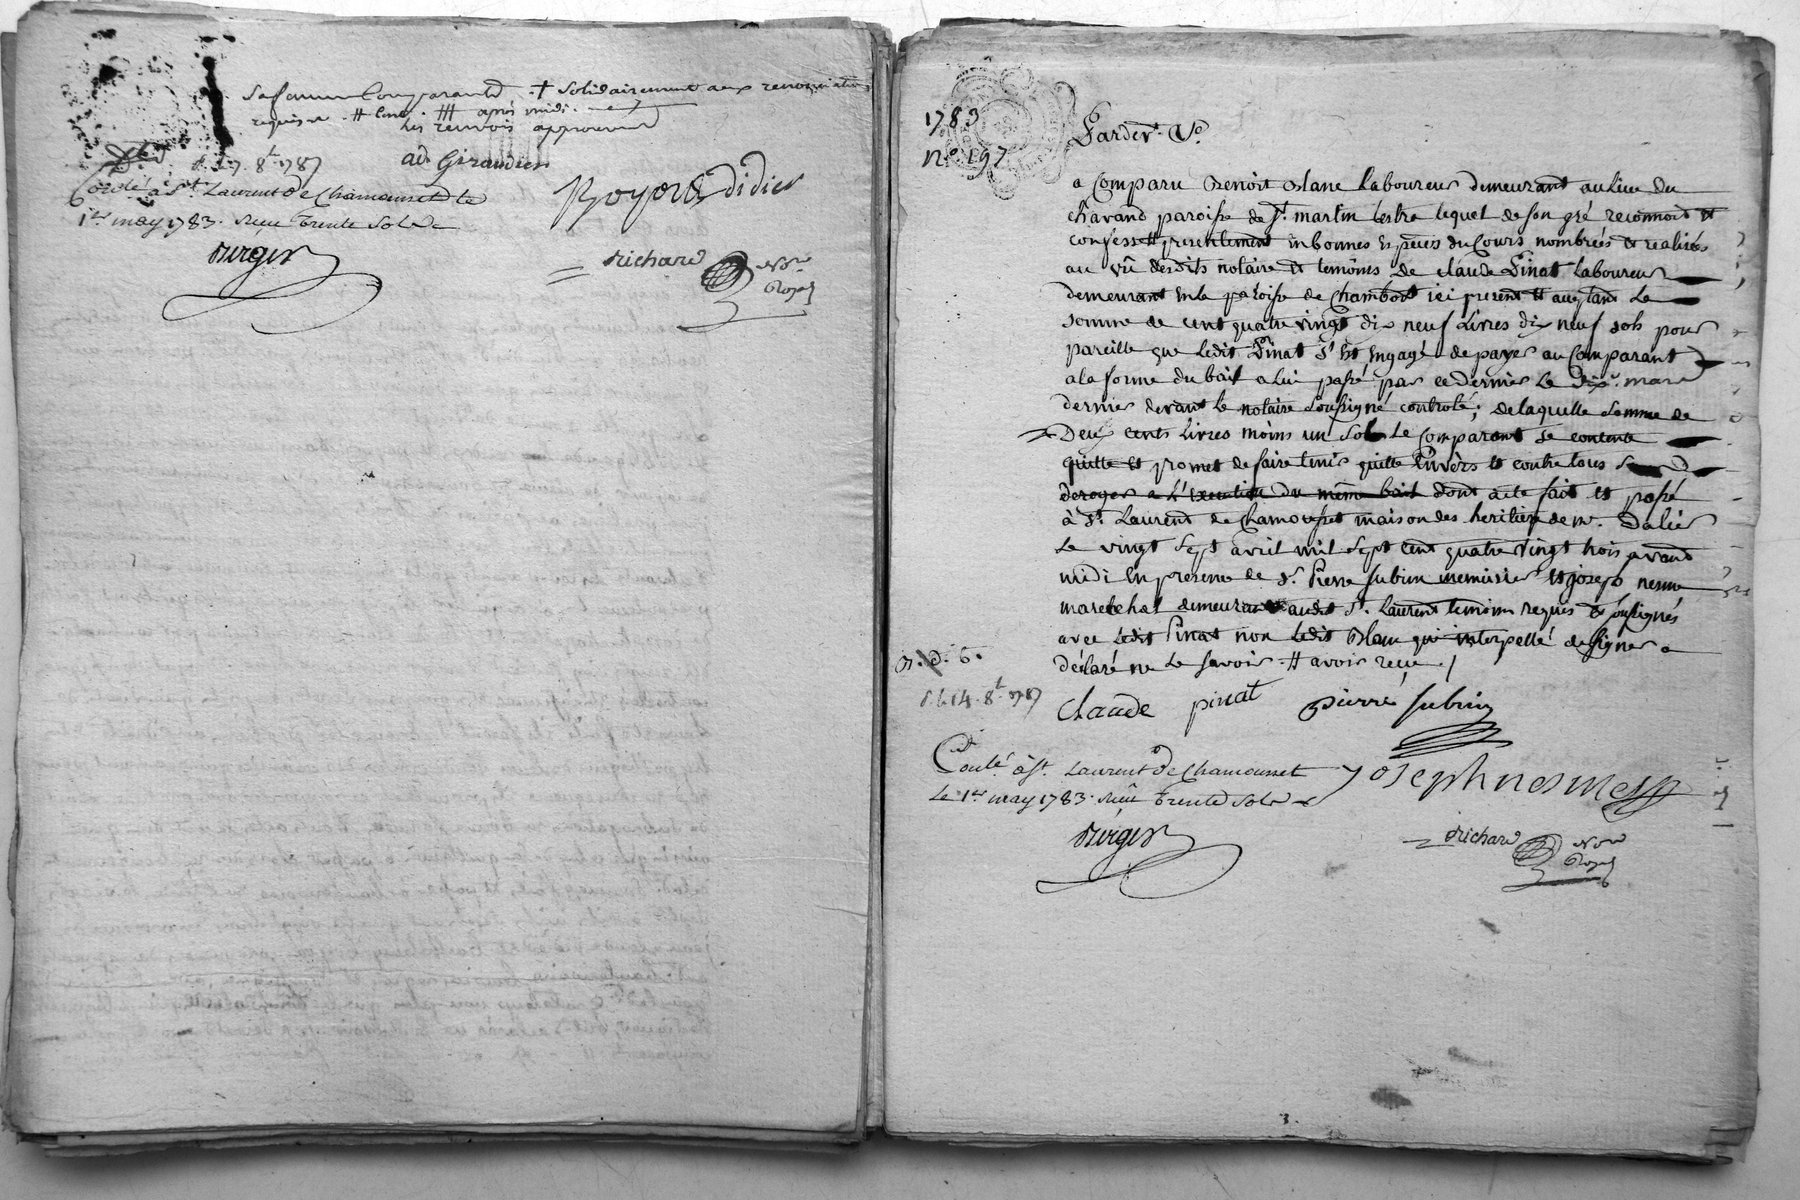 Sa femme Comparante + solidairement aux renonciations
requises # Cent ### après midi
les renvois approuvés
d. le 7. 8t. 1787
ad Giraudier
Conlé a St Laurent de Chamousset le
Royer Didier
1er may 1783. Reçu Trente Sols
Berger
Richard
Nore Royal
1783
No. 197
Pardevt. Ve.
a Comparu Benoit Blanc Laboureur demeurant au Lieu du
Chavand paroisse de St. martin Lestra lequel de son gré reconnoit et
confesse presentement en bonnes Especes du Cours nombrées et realisées
au vû desdits notaire et temoins de claude Pinat Laboureur
demeurant en la paroisse de Chambost ici present et acceptant La
somme de cent quatre vingt dix neuf Livres dix neuf sols pour
pareille que Ledit Pinat s'est Engagé de payer au Comparant
a la forme du bail a lui passé par ce dernier Le dix mars
dernier devant le notaire soussigné controlé; de laquelle somme de
Deux cents Livres moins un sol Le Comparant se contente
quitte et promet de faire tenir quitte Envers et contre tous
deroger a L'execution du même bail dont acte fait et passé
à St. Laurent de Chamousset maison des heritiers de mr. Dalier
Le vingt sept avril mil sept cent quatre vingt trois avant
midi En presence de Sr. Pierre Subrin menuisier et joseph nesme
marechal demeurants audit St. Laurent temoins requis et soussignés
avec Ledit Pinat non Ledit Blanc qui interpellé de signer a
déclaré ne Le savoir. # avoir reçu
d. le 14. 8t. 1787
Claude pinat pierre subrin
Conlé à St. Laurent de Chamousset
joseph nesme
Le 1er may 1783. Reçu Trente Sols
Berger
Richard
Nore Royal
3.